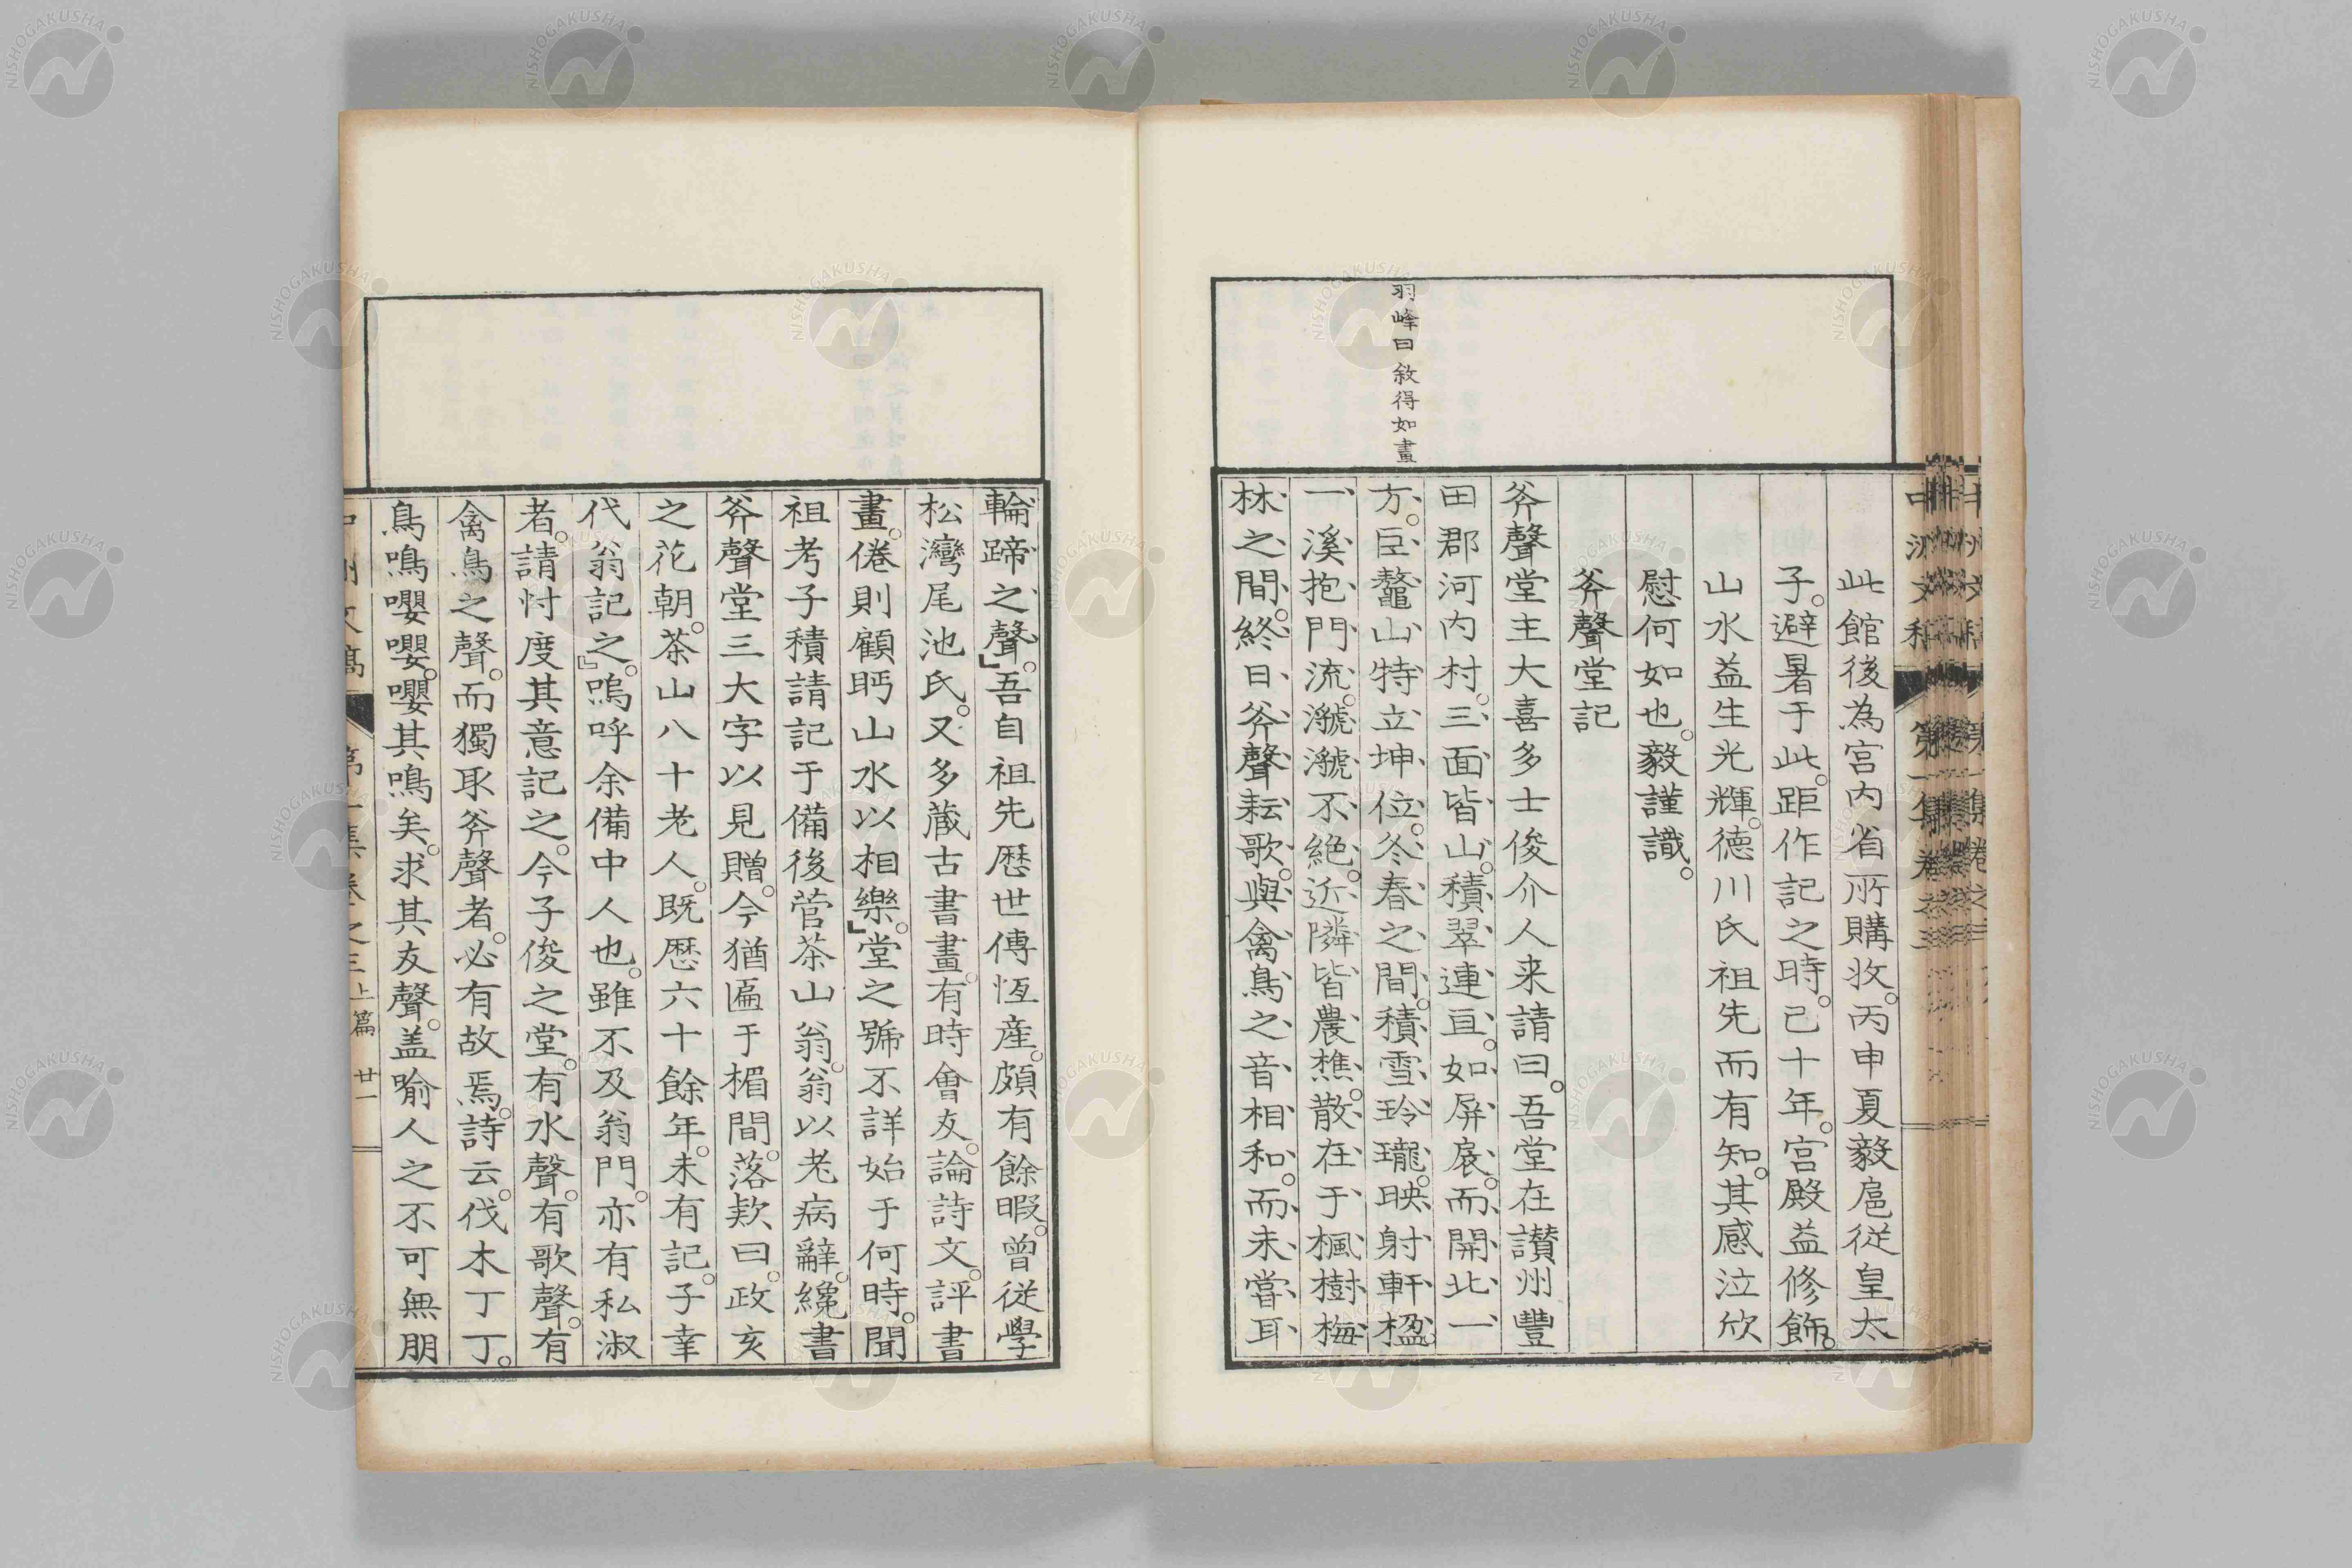 此館後為宮内省所購收。丙申夏毅扈従皇太
子。避暑于此。距作記之時。已十年。宮殿益修飾。
山水益生光輝。德川氏祖先而有知。其感泣欣
慰何如也。毅謹識。
斧聲堂記
斧聲堂主大喜多士俊介人来請曰。吾堂在讃州豐
田郡河内村。三面皆山。積翠連亘。如屏扆。而開北一
方。巨鼇山特立坤位。冬春之間。積雪玲瓏。映射軒楹。
一溪抱門流。㶁㶁不絶。近隣皆農樵。散在于楓樹梅
林之間。終日斧聲耘歌。與禽鳥之音相和。而未嘗耳
羽峰曰敘得如畫
輪蹄之聲。」吾自祖先歴世傳恆産。頗有餘暇。曽従學
松灣尾池氏。又多蔵古書畫。有時會友。論詩文。評書
畫。倦則顧眄山水以相樂。」堂之號不詳始于何時。聞
祖考子積請記于備後菅茶山翁。翁以老病辭。纔書
斧聲堂三大字以見贈。今猶匾于楣間。落款曰。政亥
之花朝。茶山八十老人。既歴六十餘年。未有記。子幸
代翁記之。』嗚呼余備中人也。雖不及翁門。亦有私淑
者。請忖度其意記之。今子俊之堂。有水聲。有歌聲。有
禽鳥之聲。而獨取斧聲者。必有故焉。詩云。伐木丁丁。
鳥鳴嚶嚶。嚶其鳴矣。求其友聲。盖喻人之不可無朋
第一集卷之三上篇 廿一
NISHOGAKUSHA